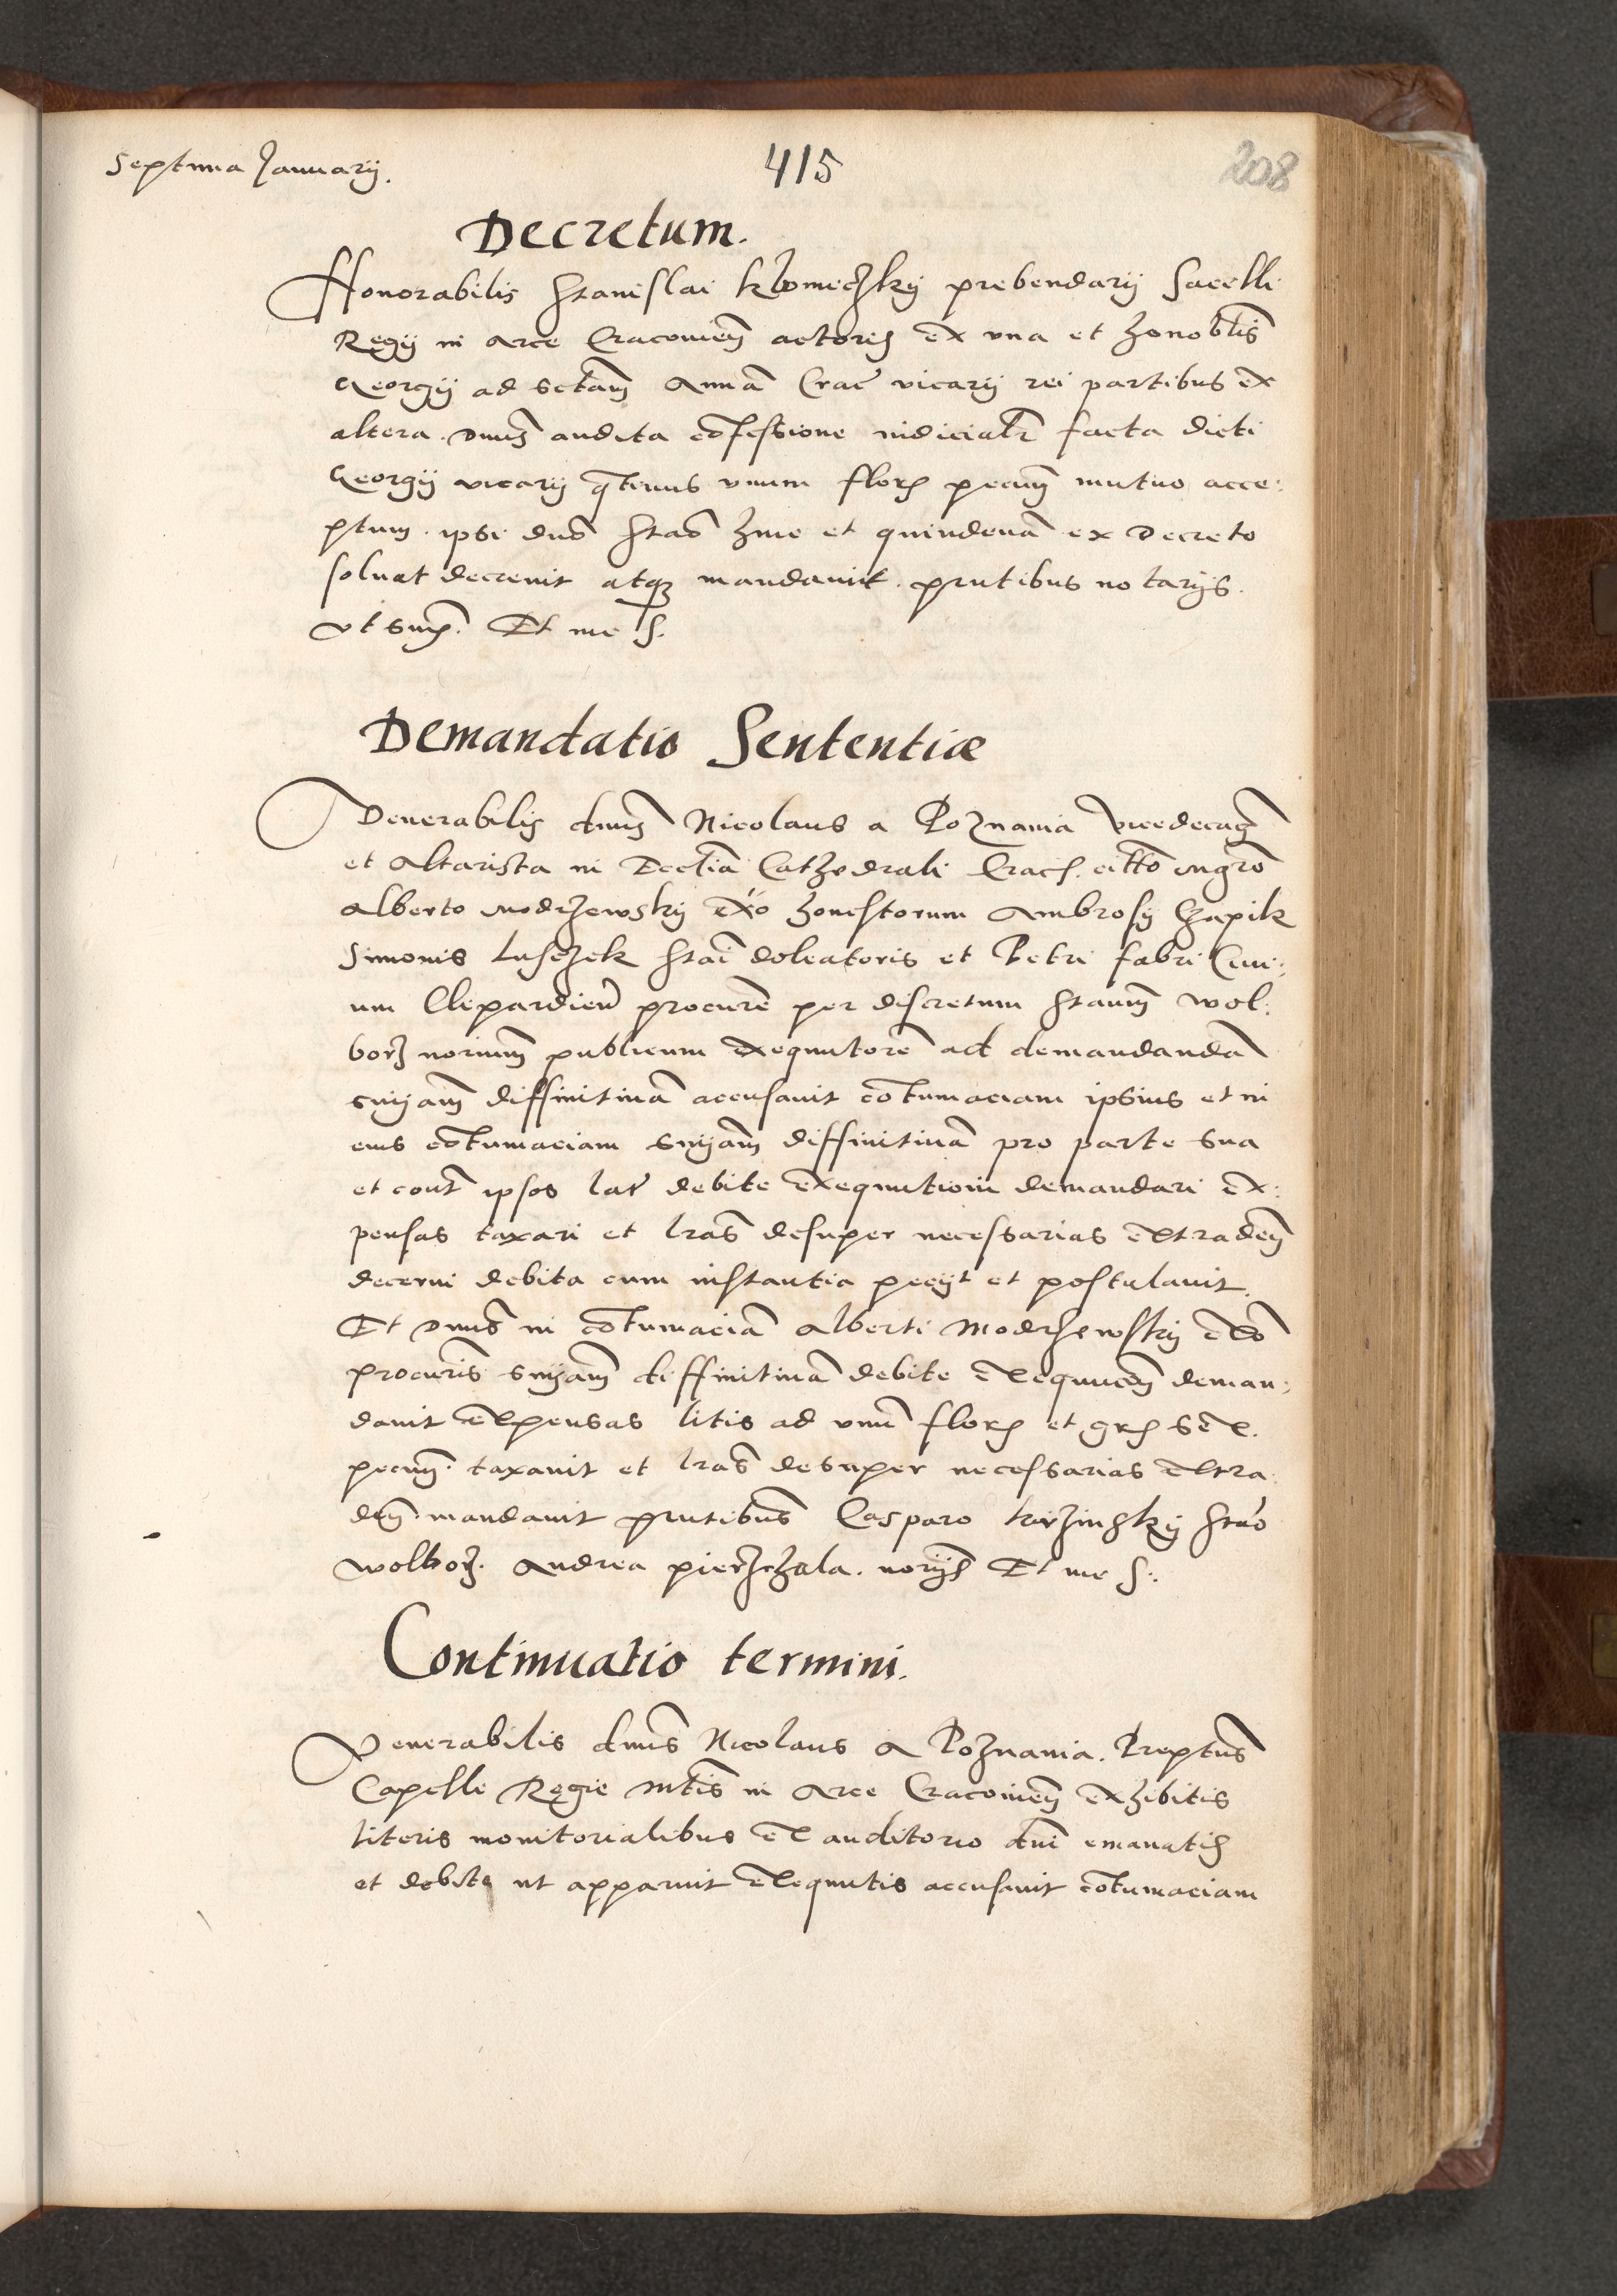 Septima Januarij.
415
208
Decretum.
Honorabilis Stanislai prebendarij Sacelli
Regij in Arce Cracovien actoris ex una et honoblis
Georgij ad Sctam Annā Crac vicarij rei partibus ex
altera. Dnus audita cōfessione iudicialr facta dicti
Georgij vicarij qtinus unum flor pecun mutuo acce:
ptum. ipsi dno Stao hinc et quindenā ex Decreto
solvat decrevit atq mandavit. prntibus notarijs.
ut sup. Et me S.
Demandatio Sententiæ
Venerabilis dnus Nicolaus a Poznania Vicedecan
et Altarista in Ecclia Cathedrali Crac. citto mgro
Alberto Modrzewsky exo honestorum Ambrosij Czapik
Simonis Stai doleatoris et Petri fabri Civi:
um Clepardien procure per discretum Staum Wol:
borz norium publicum exequutorē ad demandandā
snijam diffinitivā accusavit cōtumaciam ipsius et in
eius cōtumaciam snijam diffinitivā pro parte sua
et cont ipsos lat debite exequutioni demandari ex:
pensas taxari et lras desuper necessarias extraden
decerni debita cum instantia pecijt et postulavit.
Et Dnus in cōtumaciā Alberti Modrzewsky exo
procuris snijam diffinitivā debite exequucōn deman:
davit expensas litis ad unū flor et grs sex.
pecun. taxavit et lras desuper necessarias extra
den mandavit prntibus Casparo Stao
Wolborz. Andrea pierzchala. norijs Et me S:
Continuatio termini.
Venerabilis dnus Nicolaus a Poznania. Preptus
Capelle Regie Mtis in Arce Cracovien exhibitis
literis monitorialibus ex auditorio dni emanatis
et debite ut apparuit exequutis accusavit cōtumaciam